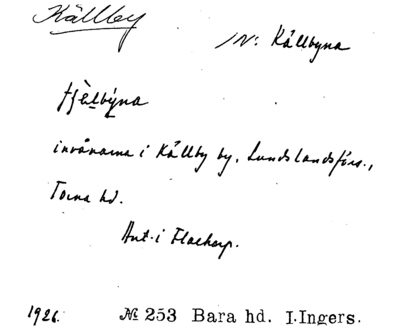 Källby
IN: Källbyna
tjèlbýna
invånarna i Källby by, Lunds landsförs.,
Torna hd.
Ant. i Flackarp.
1926. № 253 Bara hd. I.Ingers.